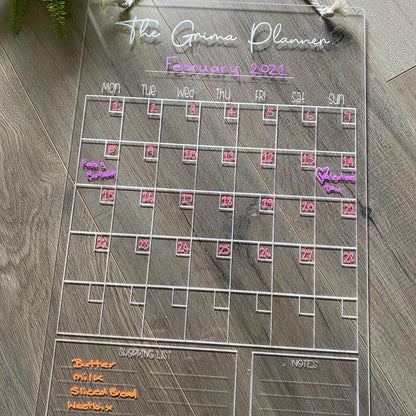 The Grima Planner
February 2021
Mon Tue Wed Thu Fri Sat Sun
1 2 3 4 5 6 7
8 9 10 11 12 13 14
Birthday
Valentines
Day
15 16 17 18 19 20 21
22 23 24 25 26 27 28
SHOPPING LIST
NOTES
Butter
Milk
Sliced Bread
Weetbix